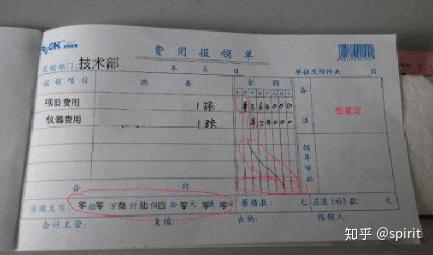 费用报销单
报销部门:技术部 年 月 日 单据及附件共 页
报销项目 摘要 金额 备注
项目费用 1张 ¥364000
仪器费用 1张 ¥34000
领导审批
合计
金额大写:零拾零万叁仟陆佰四拾零元零角零分 原借款: 元 应退(补)款: 元
会计主管: 复核: 出纳: 报销人:
知乎 @spirit